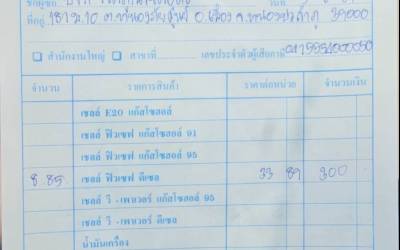 ที่อยู่ 181 ม.10 ต. อ.เมือง จ.หนองบัวลำภู 39000
☐ สำนักงานใหญ่ ☐ สาขาที่ เลขประจำตัวผู้เสียภาษี
จำนวน รายการสินค้า ราคาต่อหน่วย จำนวนเงิน
เชลล์ E20 แก๊สโซฮอล์
เชลล์ ฟิวเซฟ แก๊สโซฮอล์ 91
เชลล์ ฟิวเซฟ แก๊สโซฮอล์ 95
8.85 เชลล์ ฟิวเซฟ ดีเซล 33 89 300
เชลล์ วี -เพาเวอร์ แก๊สโซฮอล์ 95
เชลล์ วี -เพาเวอร์ ดีเซล
น้ำมันเครื่อง